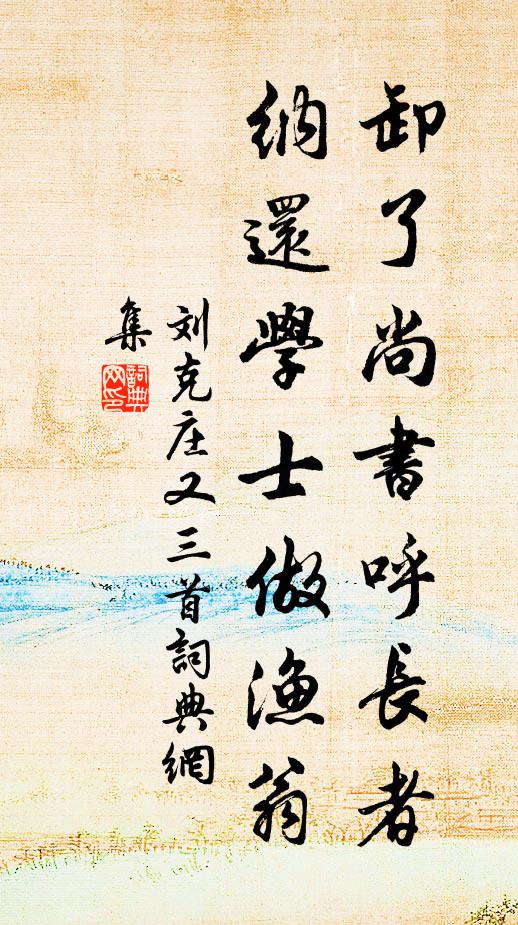 卸了尚書呼長者
納還學士做漁翁
刘克庄又三首詞典網
集
詞典
网印